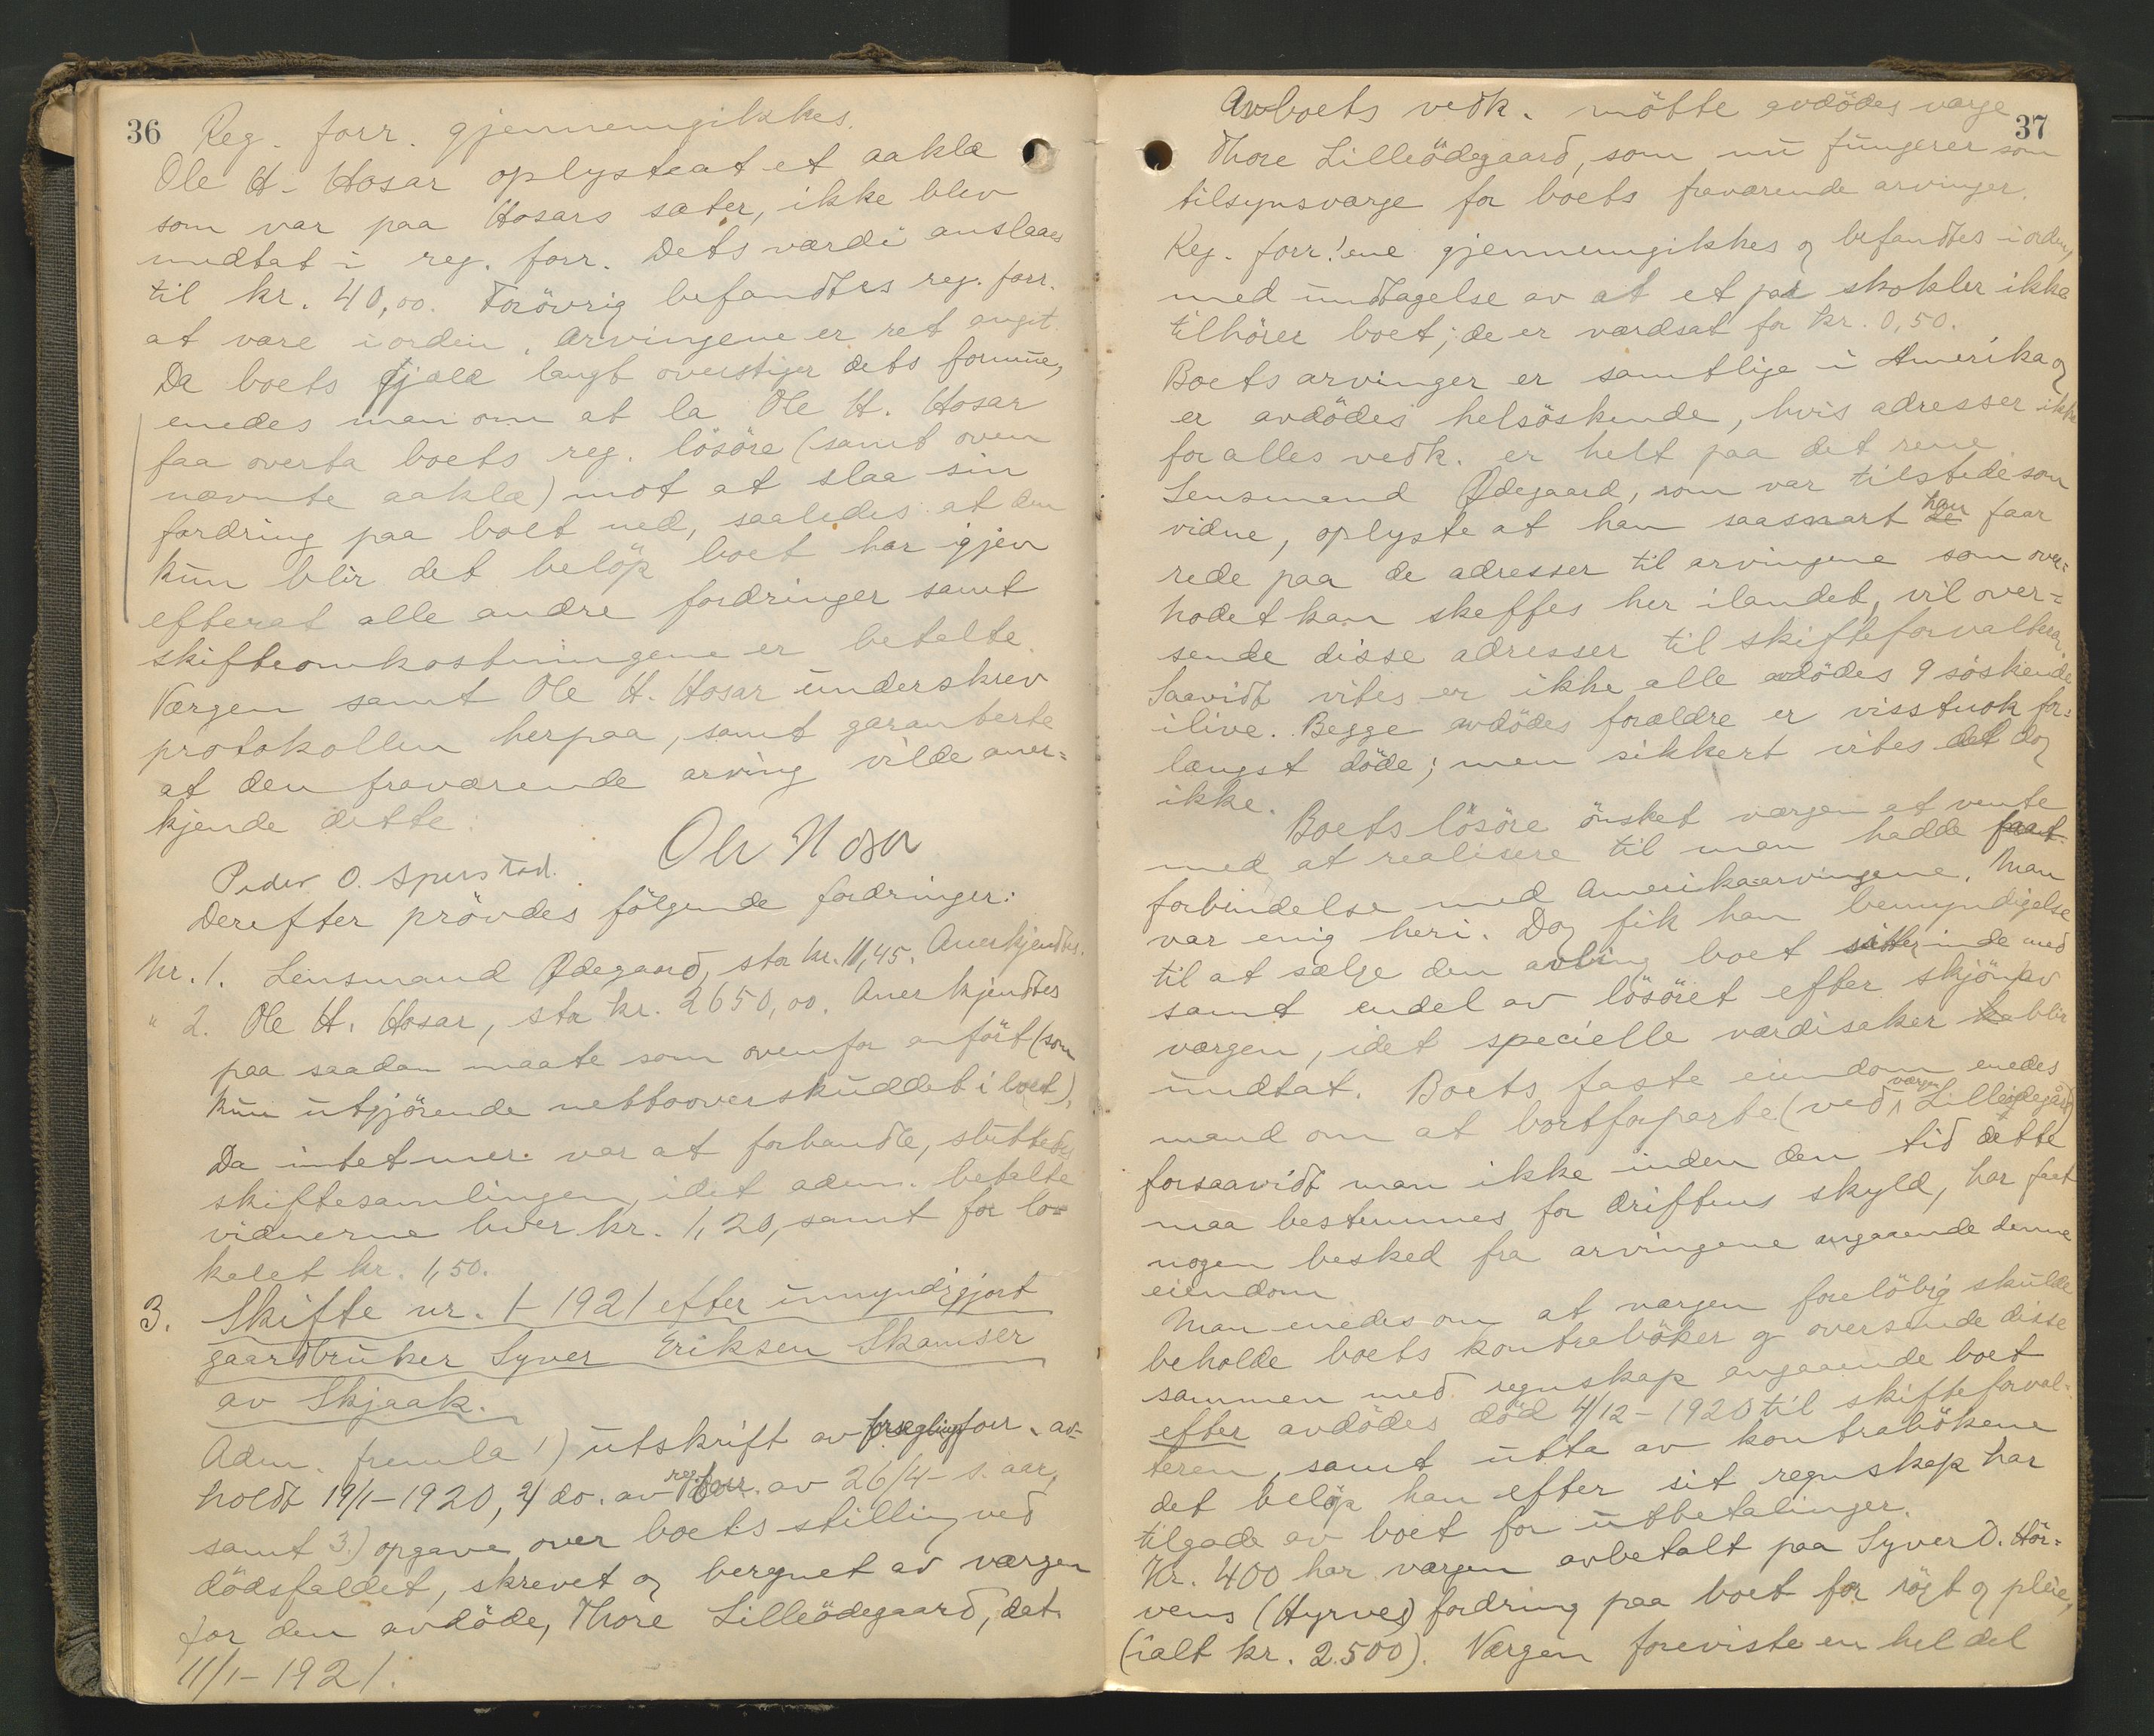 36 Reg. forr. gjennemgikkes.
Ole H. Hosar oplysteat et aaklæ
som var paa Hosars sæter, ikke blev
medtat i reg. forr. Dets værdi anslaaes
til kr. 40,00. Forövrig befandtes reg. forr.
at være i orden. Arvingene er ret angit.
Da boets gjæld langt overstiger dets formue,
enedes man om at la Ole H. Hosar
faa overta boets reg. lösöre (samt oven
nævnte aaklæ) mot at slaa sin
fordring paa boet ned, saaledes at den
kun blir det belöp boet har igjen
efterat alle andre fordringer samt
skifteomkostningene er betalte.
Værgen samt Ole H. Hosar underskrev
protokollen herpaa, samt garanterte
at den fraværende arving vilde aner=
kjende dette.
Ole Hosar
Peder O. Sperstad.
Derefter prövdes fölgende fordringer:
Nr. 1. Lensmand Ødegaard, stor kr. 11,45. Anerkjendtes.
" 2. Ole H. Hosar, stor kr. 2650,00. Anerkjendtes
paa saadan maate som ovenfor anfört (som
kun utgjörende nettooverskuddet i boet).
Da intet mer var at forhandle, sluttedes
skiftesamlingen, idet adm. betalte
vidnerne hver kr. 1,20, samt for lo=
kalet kr. 1,50.
3. Skifte nr. 1-1921 efter umyndiggjort
gaardbruker Syver Eriksen Skamser
av Skjaak.
Adm. fremla 1) utskrift av forseglingsforr. av=
holdt 19/1-1920, 2) do. av reg.forr. av 26/4- s. aar,
samt 3.) opgave over boets stilling ved
dödsfaldet, skrevet og beregnet av værgen
for den avdöde, Thore Lilleödegaard, dat.
11/1-1921.
37
Av boets vedk. mötte avdödes værge
Thore Lilleödegaard, som nu fungerer som
tilsynsværge for boets fraværende arvinger.
Reg. forr.'ene gjennemgikkes og befandtes i orden,
med undtagelse av at et par skokler ikke
tilhörer boet; de er værdsat for kr. 0,50.
Boets arvinger er samtlige i Amerika og
er avdödes helsöskende, hvis adresser ikke
for alles vedk. er helt paa det rene
Lensmand Ødegaard, som var tilstede som
vidne, oplyste at han saasnart han faar
rede paa de adresser til arvingene som over=
hodet kan skaffes her ilandet, vil over=
sende disse adresser til skifteforvalteren.
Saavidt vites er ikke alle avdödes 9 söskende
ilive. Begge avdödes forældre er visstnok for=
længst döde; men sikkert vites det dog
ikke.
Boets lösöre önsket værgen at vente
med at realisere til man hadde faat
forbindelse med Amerikaarvingene. Man
var enig heri. Dog fik han bemyndigelse
til at sælge den avling boet sitter inde med
samt endel av lösöret efter skjön av
værgen, idet specielle værdisaker blir
undtat. Boets faste eiendom enedes
mand om at bortforparte (ved værgen Lilleödegård)
forsaavidt man ikke inden den tid dette
maa bestemmes for driftens skyld, har faat
nogen besked fra arvingene angaaende denne
eiendom
Man enedes om at værgen foreløbig skulde
beholde boets kontraböker og oversende disse
sammen med regnskap angaaende boet
efter avdödes död 4/12-1920 til skifteforval=
teren, samt utta av kontrabökene
det belöp han efter sit regnskap har
tilgode av boet for utbetalinger.
Kr. 400 har værgen avbetalt paa Syver O. Hör=
vens (Hyrves) fordring paa boet for rögt og pleie,
(ialt kr. 2.500). Værgen foreviste en hel del